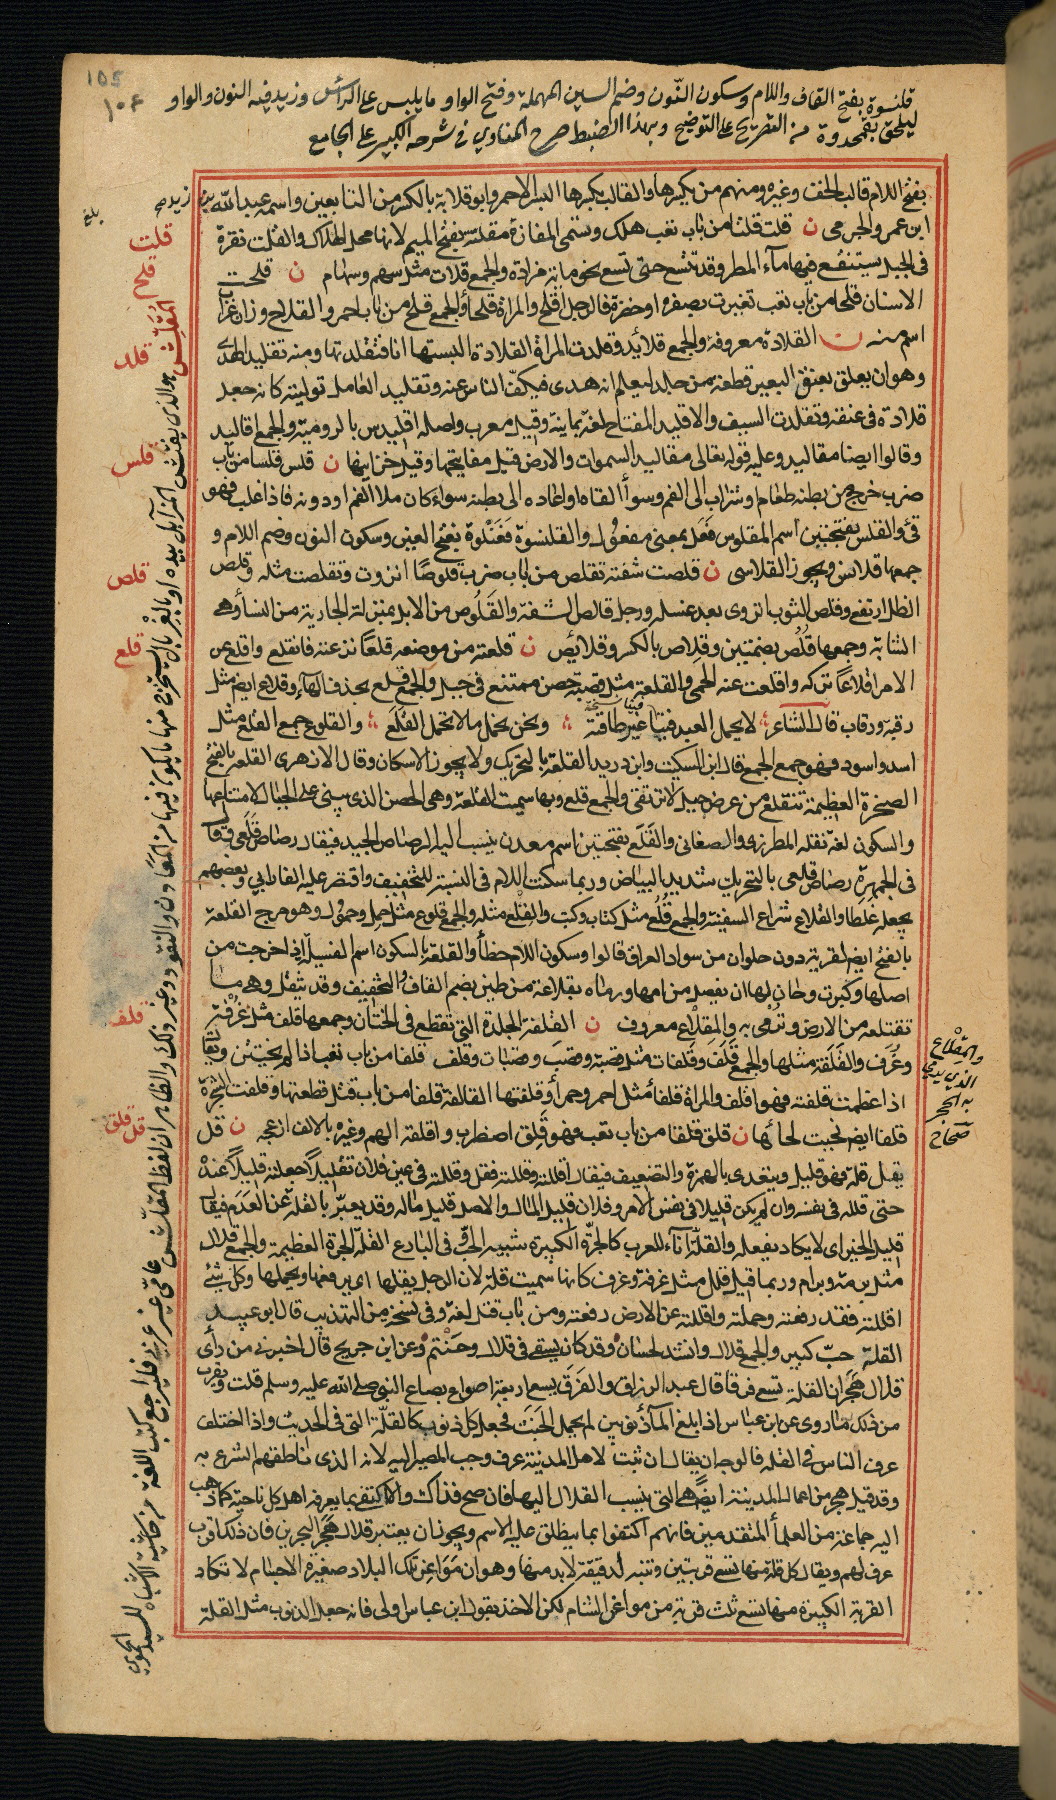 105
١٠٤
قلنسوة بفتح القاف واللام وسكون النّون وضم السين المهملة وفتح الواو ما يلبس على الرأس وزيد فيه النون والواو
ليلحق بقمحدوة من التصريح على التوضيح وبهذا الضبط صرح المناوي في شرحه الكبير على الجامع
بفتح اللام قالب الخف وغيره ومنهم من يكسرها والقالب بكسرها البسر الاحمر وابو قلابة بالكسر من التابعين واسمه عبد الله بن زيد
ابن عمرو الجرمي ن قلت قلتا من باب تعب هلك وتسمى المفازة مقلتة بفتح الميم لانها محل الهلاك والقلت نقرة
في الجبل يستنقع فيها ماء المطر وقد تسع حتى تسع نحو مائة مزادة والجمع قلات مثل سهم وسهام ن قلحت
الاسنان قلحا من باب تعب تغيرت بصفرة او خضرة فالرجل اقلح والمرأة قلحاء والجمع قلح من باب احمر والقلاح وزان غراب
اسم منه ن القلادة معروفة والجمع قلائد وقلدت المرأة القلادة البستها اياها فتقلدتها ومنه تقليد الهدى
وهو ان يعلق بعنق البعير قطعة من جلد ليعلم انه هدى فيكفّ الناس عنه وتقليد العامل توليته كانه جعل
قلادة في عنقه وتقلدت السيف والاقليد المفتاح لغة يمانية وقيل معرب واصله اقليدس بالرومية والجمع اقاليد
وقالوا ايضا مقاليد وعليه قوله تعالى مقاليد السموات والارض قيل مفاتيحها وقيل خزاينها ن قلس قلسا من باب
ضرب خرج من بطنه طعام وشراب الى الفم وسواء القاه او اعاده الى بطنه سواء كان ملا الفم او دونه فاذا غلب فهو
قئ والقلس بفتحتين اسم المقلوس فَعَل بمعنى مفعول والقلنسوة فَعَنْلوة بفتح العين وسكون النون وضم اللام و
جمعها قلانس ويجوز القلاسى ن قلصت شفته تقلص من باب ضرب قلوصًا انزوت وتقلصت مثله وقلص
الظل ارتفع وقلص الثوب انزوى بعد غسله ورجل قالص الشفة والقَلُوص من الابل بمنزلة الجارية من النساء وهي
الشابة وجمعها قُلُص بضمتين وقِلاص بالكسر وقلائص ن قلعته من موضعه قلعًا نزعته فانقلع واقلع عن
الامر اقلاعًا تركه واقلعت عنه الحمى والقلعة مثل قصبة حصن ممتنع في جبل والجمع قلع بحذف الهاء وقلاع ايض مثل
رقبة ورقاب قال الشاعر لا يحمل العبد فينا غير طاقته ونحن نحمل ما لا تحمل القَلَع والقلوع جمع القلع مثل
اسد واسود فهو جمع الجمع قال ابن السكيت وابن دريد القلعة بالتحريك ولا يجوز الاسكان وقال الازهرى القلعة بالفتح
الصخرة العظيمة تنقلع من عرض جبل لا ترتقى والجمع قلع وبها سميت القلعة وهى الحصن الذى يبنى على الجبال لامتناعها
والسكون لغة نقله المطرزى والصغانى والقَلَع بفتحتين اسم معدن ينسب اليه الرصاص الجيد فيقال رصاص قَلَعى وقا
فى الجمهرة رصاص قلعى بالتحريك شديد البياض وربما سكنت اللام فى النسبة للتخفيف واقتصر عليه الفارابي وبعضهم
يجعله غلطا والقلاع شراع السفينة والجمع قُلُع مثل كتاب وكتب والقِلع مثله والجمع قلوع مثل حمل وحمول وهو مرج القلعة
بالفتح ايض لقرية دون حلوان من سواد العراق قالوا وسكون اللام خطأ والقلعة بالسكون اسم الفسيلة اذا خرجت من
اصلها وكبرت وحان لها ان تفصل من امها ورماه بقلاعة من طين بضم القاف والتخفيف وقد يثقل وهى ما
تقتلعه من الارض وترمى به والمِقلاع معروف ن القلفة الجلدة التى تقطع في الختان وجمعها قلف مثل غُرْفة
وغُرَف والقَلَفَة مثلها والجمع قَلَف وقَلَفات مثل قصبة وقصب وقصبات وقلف قلفا من باب تعب اذا لم يختتن ويقا
اذا عظمت قلفته فهو اقلف والمرأة قلفاء مثل احمر وحمراء وقلفتها القالفة قلفا من باب قتل قطعتها وقلفت الشجرة
قلفا ايض نحيت لحاءها ن قلق قلقا من باب تعب فهو قَلِق اضطرب واقلقه الهم وغيره بالالف ازعجه ن قل
يقل قلة فهو قليل ويتعدى بالهمزة والتضعيف فيقال اقللته وقللته فقل وقللته في عين فلان تقليلاً جعلته قليلاً عنده
حتى قلله فى نفسه وان لم يكن قليلا فى نفس الامر وفلان قليل المال والاصل قليل ماله وقد يعبّر بالقلة عن العَدَم فيقا
قليل الخير اى لا يكاد يفعله والقلّة اناء للعرب كالجرّة الكبيرة شبه الحُبّ وفى البارع القلّة الجرة العظيمة والجمع قلال
مثل برمة وبرام وربما قيل قلل مثل غرفة وغرف كانها سميت قلة لان الرجل يقلها اى يرفعها ويحملها وكل شئ
اقللته فقد رفعته وحملته واقللته عن الارض رفعته ومن باب قتل لغة وفى نسخة من التهذيب قال ابو عبيد
القلة حبّ كبير والجمع قلال وانشد لحسان وقد كان يسقى فى قلال وحَنْتَم وعن ابن جريج قال اخبرنى من رأى
قلال هَجَر ان القلة تسع فرقا قال عبد الرزاق والفَرَق يسع اربعة اصواع بصاع النبى صلى الله عليه وسلم قلت ويقرب
من ذلك ما روى عن ابن عباس اذا بلغ الماء ذنوبين لم يحمل الخَبَث فجعل كل ذنوب كالقلّة التى فى الحديث واذا اختلف
عرف الناس فى القلة فالوجه ان يقال ان ثبت لاهل المدينة عرف وجب المصير اليه لانه الذى ناطقهم الشرع به
وقد قيل هجر من اعمال المدينة ايضًا هى التى ينسب القلال اليها فان صح فذاك والا اكتفى بما يعرفه اهل كل ناحية كما ذهب
اليه جماعة من العلماء المتقدمين فانهم اكتفوا بما ينطلق عليه الاسم ويجوز ان يعتبر قلال هَجَر البحرين فان ذلك اقرب
عرف لهم ويقال كل قلة منها تسع قربتين وتنبه لدقيقة لابد منها وهو ان مَوَاعِن تلك البلاد صغيرة الاجسام لا تكاد
القربة الكبيرة منها تسع ثلث قربة من مواعن الشام لكن الاخذ بقول ابن عباس اولى فانه جعل الذنوب مثل القلة
بلغ
قلت
قلح
قلد
قلس
قلص
قلع
قلف
قلق
قل
المُقَلِّش هو الذى يفتش المزابل بيده او بالغربال يستخرج منها ما يكون فيها من المعادن والنقود وغير ذلك والظاهر ان لفظ المقلش عامّى غير عربى فليراجع كتب اللغة من حاشية الاشباه للسيد الحموى
والمقْلاع
الذى يرمى
به الحجر
صحاح